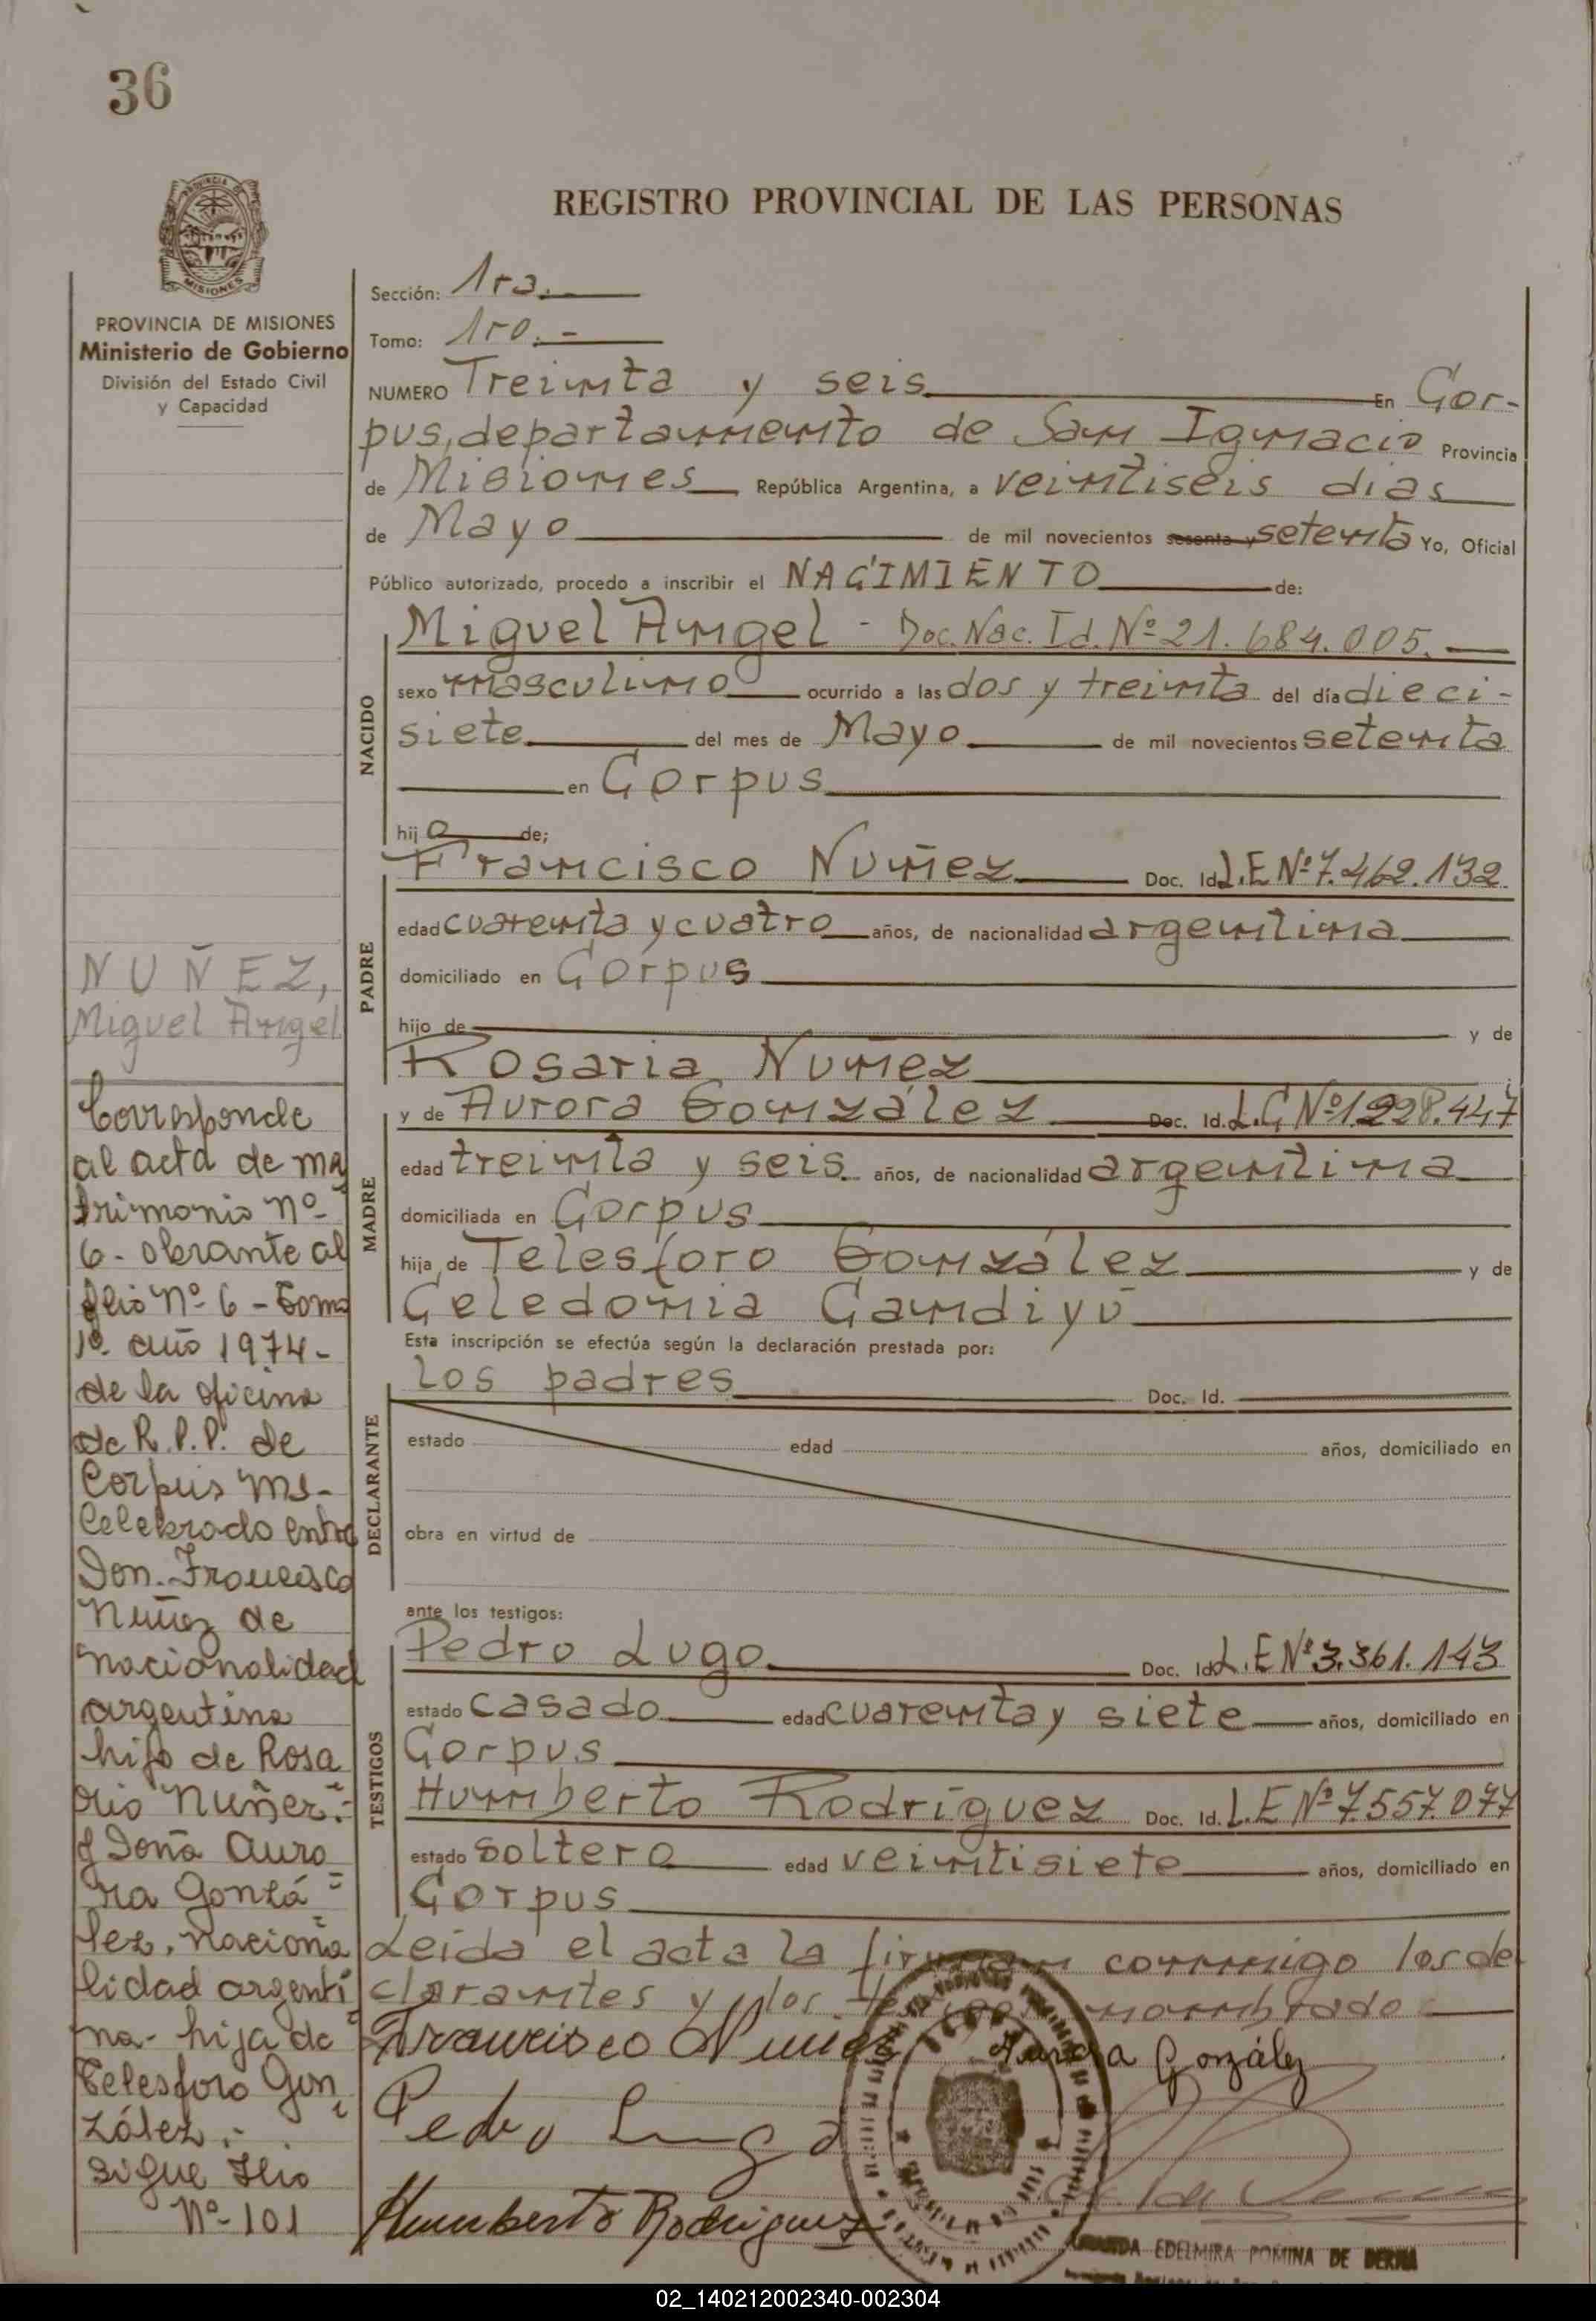 36
REGISTRO PROVINCIAL DE LAS PERSONAS
PROVINCIA DE MISIONES
Ministerio de Gobierno
División del Estado Civil
y Capacidad
Sección: 1ra.
Tomo: 1ro.-
NUMERO Treinta y seis En Cor-
pus, departamento de San Ignacio Provincia
de Misiones República Argentina, a veintiseis dias
de Mayo de mil novecientos sesenta y setenta Yo, Oficial
Público autorizado, procedo a inscribir el NACIMIENTO de:
NACIDO
Miguel Angel - Doc. Nac. Id. Nº 21.684.005.
sexo masculino ocurrido a las dos y treinta del día dieci-
siete del mes de Mayo de mil novecientos setenta
en Corpus
hijo de;
PADRE
Francisco Nuñez Doc. Id. L.E Nº 7.462.132
edad cuarenta y cuatro años, de nacionalidad argentina
domiciliado en Corpus
hijo de y de
Rosaria Nuñez
MADRE
y de Aurora González Doc. Id. L.C Nº 1.228.447
edad treinta y seis años, de nacionalidad argentina
domiciliada en Corpus
hija de Telesforo González y de
Celedonia Candiyú
Esta inscripción se efectúa según la declaración prestada por:
DECLARANTE
los padres Doc. Id.
estado edad años, domiciliado en
obra en virtud de
ante los testigos:
TESTIGOS
Pedro Lugo Doc. Id. L.E Nº 3.361.143
estado casado edad cuarenta y siete años, domiciliado en
Corpus
Humberto Rodríguez Doc. Id. L.E Nº 7.557.077
estado soltero edad veintisiete años, domiciliado en
Corpus
Leida el acta la firman conmigo los de
clarantes y los testigos nombrado
Francisco Nuñez Aurora González
Pedro Lugo
Humberto Rodriguez
EDELMIRA POMINA DE
NUÑEZ,
Miguel Angel
Corresponde
al acta de ma
trimonio nº
6- obrante al
folio nº 6 - Tomo
1º año 1974-
de la oficina
de R.P.P. de
Corpus ms-
Celebrado entre
Don. Francisco
Nuñez de
nacionalidad
argentina
hijo de Rosa
rio Nuñez.-
y Doña Auro
ra Gonzá
lez, naciona
lidad argenti
na- hija de
Telesforo Gon
zález.-
sigue folio
Nº 101
02_140212002340-002304